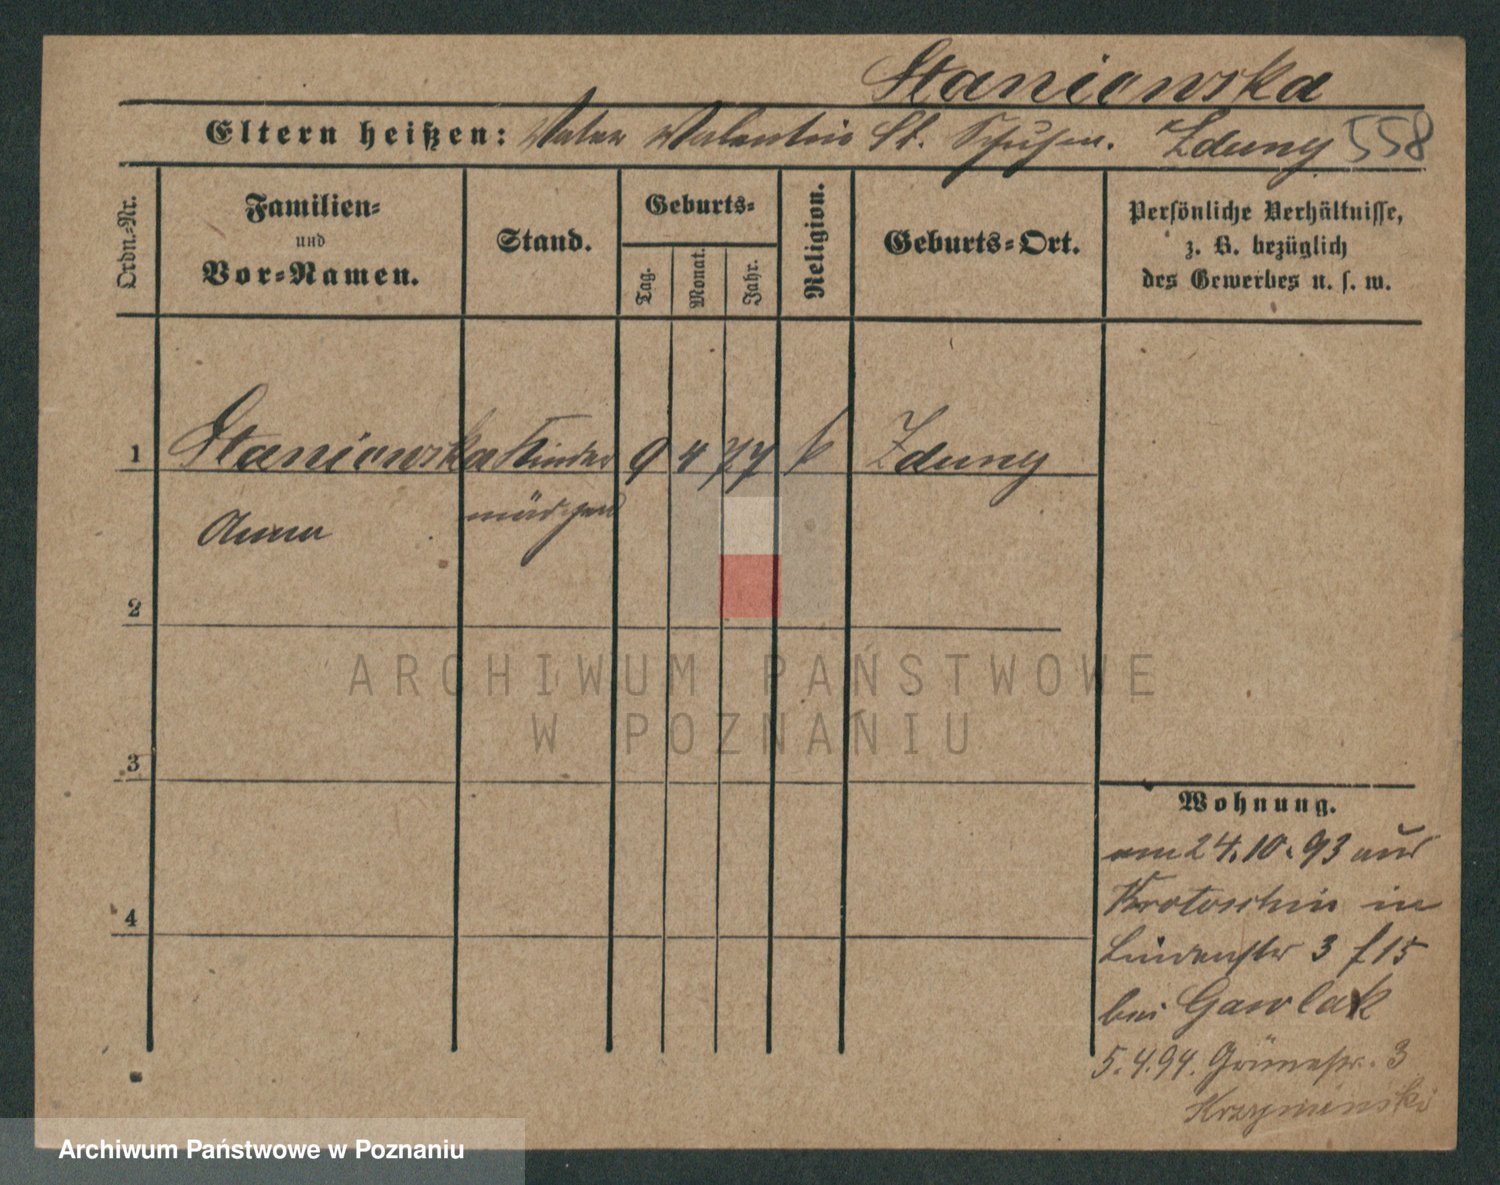 Staniowska
Eltern heißen: Vater Valentin St. Zduny 558
Ordn.-Nr.
Familien-
und
Vor-Namen.
Stand.
Geburts-
Tag.
Monat.
Jahr.
Religion.
Geburts-Ort.
Persönliche Verhältnisse,
z. B. bezüglich
des Gewerbes u. s. w.
1 Staniowska Kinder 9 4 77 k Zduny
Anna mädchen
2
3
4
Wohnung.
am 24.10.93 aus
Krotoschin in
Lindenstr 3 f 15
bei Gawlak
5.4.94. Grünestr. 3
Krzyminski
ARCHIWUM PAŃSTWOWE
W POZNANIU
Archiwum Państwowe w Poznaniu